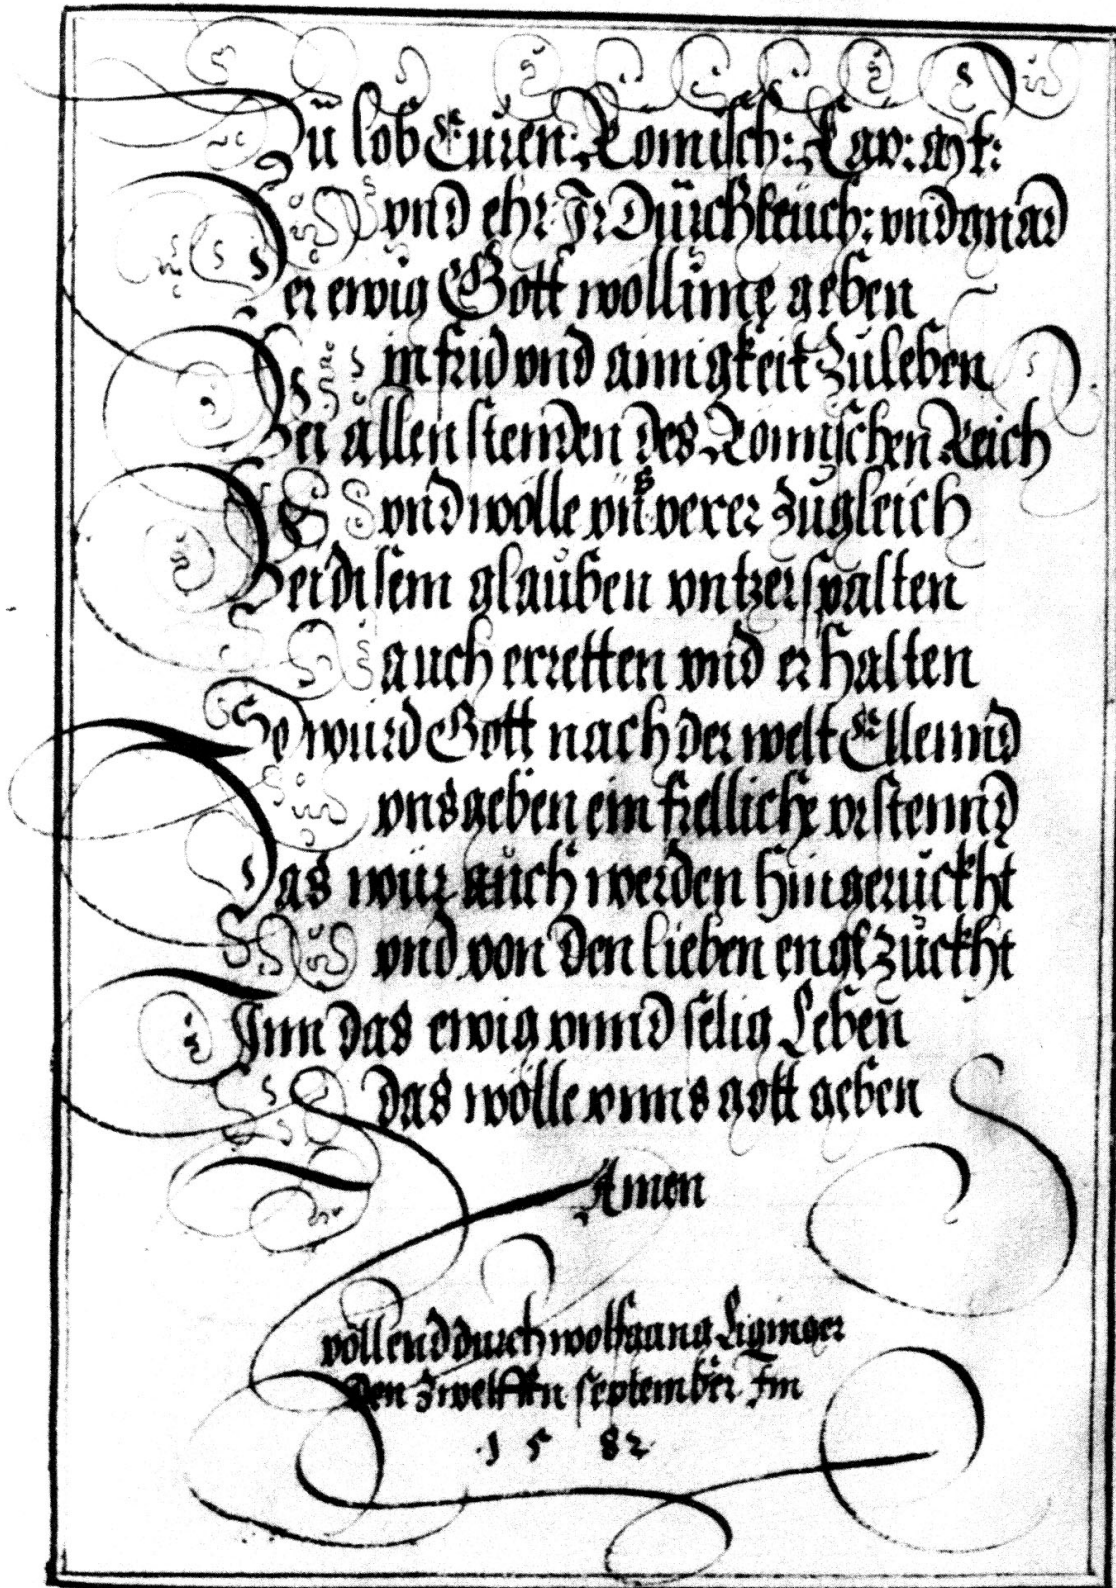 Zu lob Euren: Römisch: Kay: Mt:
vnd ehr Ir Dürchleuch: vnd gnad
Der ewig Gott wollime geben
in frid vnd ainigkeit Zuleben
Bei allen stenden des Römischen Reich
vnd wölle zugleich
Bei disem glauben vntzerspalten
auch erretten vnd erhalten
So würd Gott nach der welt Ellennd
vns geben ein frelliche vrstennd
Das wür auch werden hingeruckht
vnd von den lieben engl zuckht
Inn das ewig vnnd selig Leben
das wölle vnns gott geben
Amen
vollend durch wolfgang
Den Zwelfften september Im
1 5 82